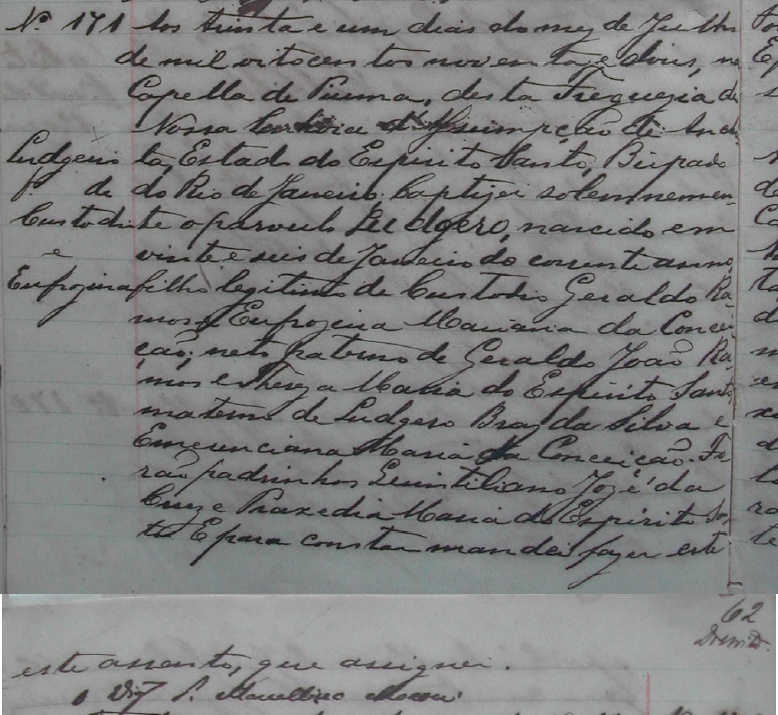 Nº 171 Aos trinta e um dias do mez de Julho
de mil oitocentos noventa e dous, na
Capella de Piuma, desta Freguezia de
Nossa Senhora d'Assumpção de Anchi
Ludgerio ta, Estado do Espirito Santo, Bispado
f. de do Rio de Janeiro baptizei solemnemen-
Custodio te o parvulo Ludgero, nascido em
e vinte e seis de Janeiro do corrente anno,
Eufrozina filho legitimo de Custodio Geraldo Ra-
mos e Eufrozina Mariana da Concei-
ção; neto paterno de Geraldo João Ra-
mos e Thereza Maria do Espirito Santo
materno de Ludgero Braz da Silva e
Emerenciana Maria da Conceição. Fo-
rão padrinhos Quintiliano José da
Cruz e Praxedia Maria do Espirito San-
to E para constar mandei fazer este
62
este assento, que assignei.
O Vigº P. Marcellino